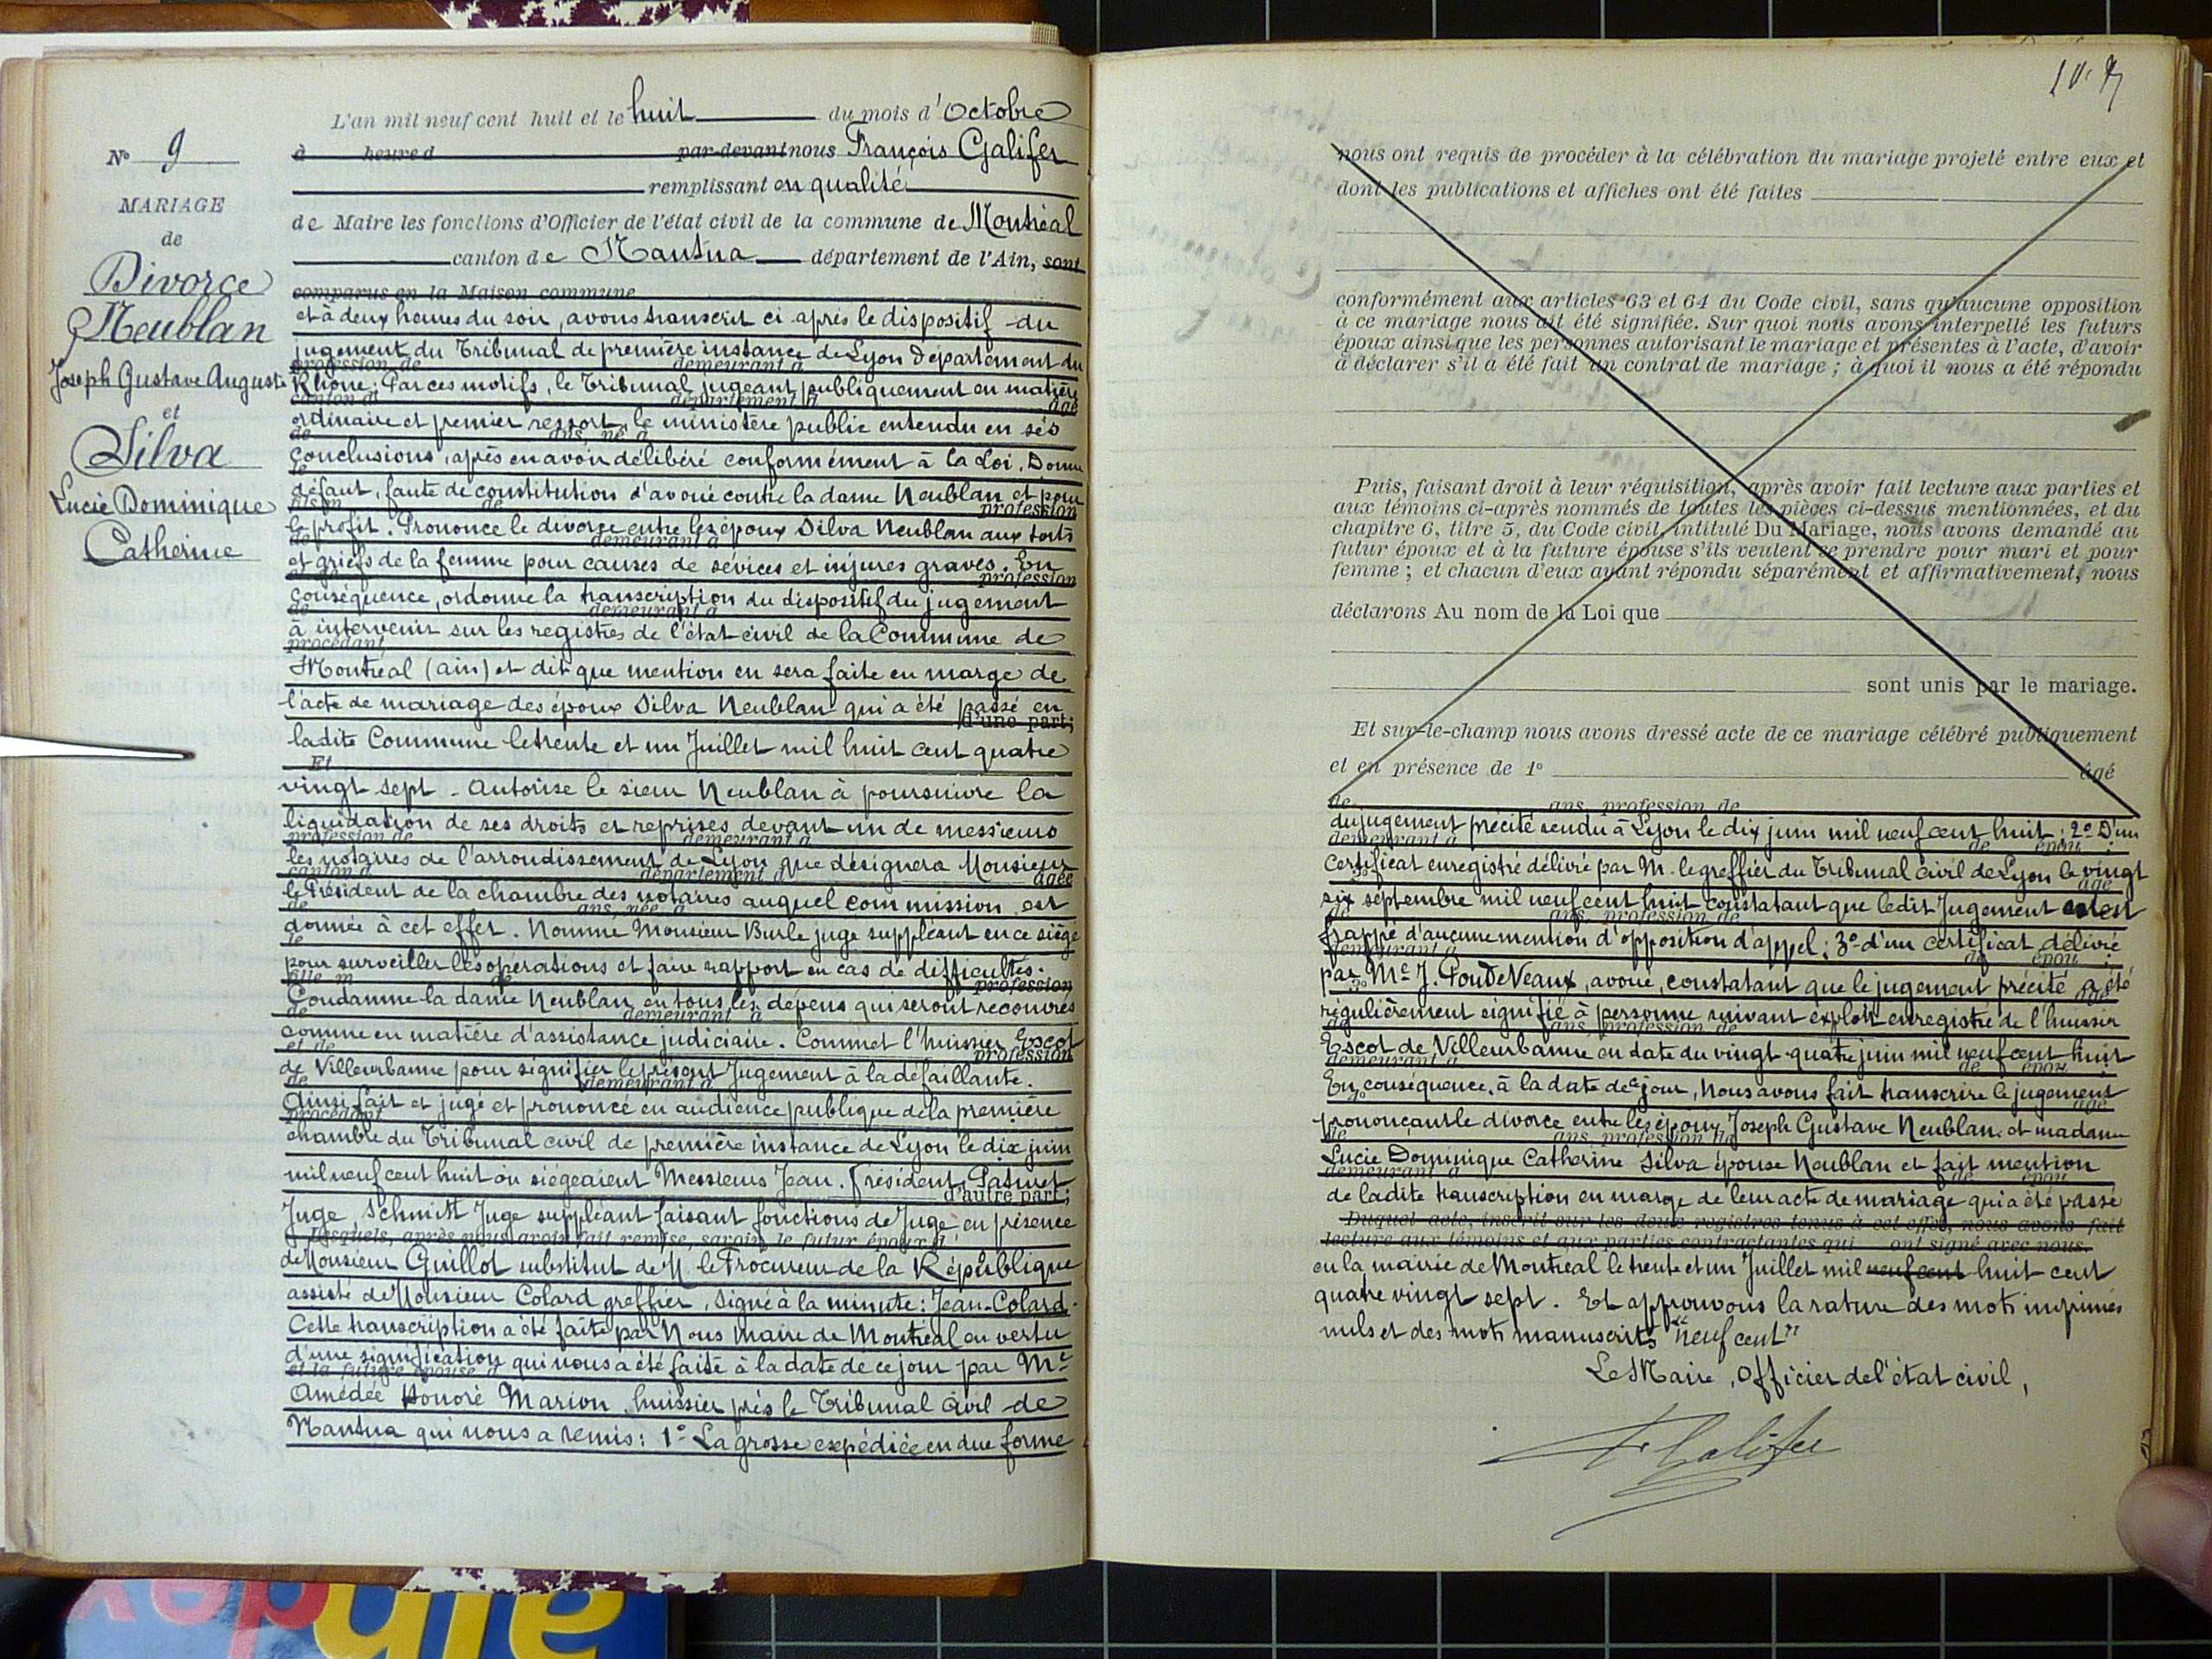 L'an mil neuf cent huit et le huit du mois d'Octobre
N° 9
à heure d par-devant nous François Galifer
remplissant en qualité
MARIAGE
de Maire les fonctions d'Officier de l'état civil de la commune de Montréal
de
canton de Nantua département de l'Ain, sont
comparus en la Maison commune
Divorce
Neublan
Joseph Gustave Auguste
et
Silva
Lucie Dominique
Catherine
et à deux heures du soir, avons transcrit ci après le dispositif du
jugement du Tribunal de première instance de Lyon département du
profession de demeurant à
Rhône: Par ces motifs, le Tribunal jugeant publiquement en matière
canton d département d âgé
ordinaire et premier ressort, le ministère public entendu en ses
de ans, né à
conclusions, après en avoir délibéré conformément à la Loi, Donne
le
défaut, faute de constitution d'avoué contre la dame Neublan et pour
fils m de profession
le profit. Prononce le divorce entre les époux Silva Neublan aux torts
de demeurant à
et griefs de la femme pour causes de sévices et injures graves. En
et de profession
conséquence, ordonne la transcription du dispositif du jugement
de demeurant à
à intervenir sur les registres de l'état civil de la Commune de
procédant
Montreal (ain) et dit que mention en sera faite en marge de
l'acte de mariage des époux Silva Neublan qui a été passé en
d'une part;
ladite Commune le trente et un Juillet mil huit cent quatre
Et
vingt sept. Autorise le sieur Neublan à poursuivre la
liquidation de ses droits et reprises devant un de messieurs
profession de demeurant à
les notaires de l'arrondissement de Lyon que désignera Monsieur
canton d département d âgée
le Président de la chambre des notaires auquel commission est
de ans, née à
donnée à cet effet. Nomme Monsieur Burle juge suppléant en ce siège
le
pour surveiller les opérations et faire rapport en cas de difficultés.
fille m de profession
Condamne la dame Neublan en tous les dépens qui seront recouvrés
de demeurant à
comme en matière d'assistance judiciaire. Commet l'huissier Escot
et de profession
de Villeurbanne pour signifier le présent Jugement à la défaillante.
de demeurant à
Ainsi fait et jugé et prononcé en audience publique de la première
procédant
chambre du Tribunal civil de première instance de Lyon le dix juin
mil neuf cent huit où siégeaient Messieurs Jean. Président,
d'autre part;
Juge, Schmitt Juge suppléant faisant fonctions de Juge, en présence
Lesquels, après nous avoir fait remise, savoir, le futur époux d
de Monsieur Guillot substitut de M. le Procureur de la République
assisté de Monsieur Colard greffier, Signé à la minute: Jean-Colard.
Cette transcription a été faite par Nous Maire de Montréal en vertu
d'une signification qui nous a été faite à la date de ce jour par Me
et la future épouse d
Amédée Honoré Marion, huissier près le Tribunal Civil de
Nantua qui nous a remis: 1° La grosse expédiée en due forme
nous ont requis de procéder à la célébration du mariage projeté entre eux et
dont les publications et affiches ont été faites
conformément aux articles 63 et 64 du Code civil, sans qu'aucune opposition
à ce mariage nous ait été signifiée. Sur quoi nous avons interpellé les futurs
époux ainsi que les personnes autorisant le mariage et présentes à l'acte, d'avoir
à déclarer s'il a été fait un contrat de mariage; à quoi il nous a été répondu
Puis, faisant droit à leur réquisition, après avoir fait lecture aux parties et
aux témoins ci-après nommés de toutes les pièces ci-dessus mentionnées, et du
chapitre 6, titre 5, du Code civil, intitulé Du Mariage, nous avons demandé au
futur époux et à la future épouse s'ils veulent se prendre pour mari et pour
femme; et chacun d'eux ayant répondu séparément et affirmativement, nous
déclarons Au nom de la Loi que
sont unis par le mariage.
Et sur-le-champ nous avons dressé acte de ce mariage célébré publiquement
et en présence de 1° âgé
de ans, profession de
du jugement précité rendu à Lyon le dix juin mil neuf cent huit; 2° D'un
demeurant à de épou ;
Certificat enregistré délivré par M. le greffier du Tribunal civil de Lyon le vingt
2° âgé
six septembre mil neuf cent huit constatant que ledit Jugement n'est
de ans, profession de
frappé d'aucune mention d'opposition d'appel; 3° d'un certificat délivré
demeurant à de épou ;
par Me J. PonDeVeaux, avoué, constatant que le jugement précité a été
3° âgé
régulièrement signifié à personne suivant exploit enregistré de l'huissier
de ans, profession de
Escot de Villeurbanne en date du vingt-quatre juin mil neuf cent huit
demeurant à de épou
En conséquence, à la date de ce jour, Nous avons fait transcrire le jugement
4° âgé
prononçant le divorce entre les époux Joseph Gustave Neublan et madame
de ans, profession de
Lucie Dominique Catherine Silva épouse Neublan et fait mention
demeurant à de épou
de ladite transcription en marge de leur acte de mariage qui a été passé
Duquel acte, inscrit sur les deux registres tenus à cet effet, nous avons fait
lecture aux témoins et aux parties contractantes qui ont signé avec nous.
en la mairie de Montreal le trente et un Juillet mil neuf cent huit cent
quatre vingt sept. Et approuvons la rature des mots imprimés
nuls et des mots manuscrits "neuf cent"
Le Maire, Officier de l'état civil,
F. Galifer